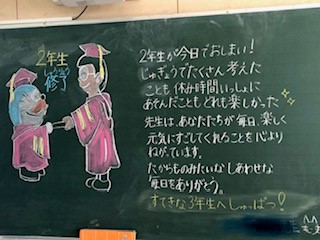 2年生
修了
2年生が今日でおしまい!
じゅぎょうでたくさん考えた
ことも休み時間いっしょに
あそんだことも どれも楽しかった
先生は、あなたたちが毎日楽しく
元気にすごしてくれることを心より
ねがっています。
たからものみたいな しあわせな
毎日をありがとう。
すてきな3年生へしゅっぱつ!